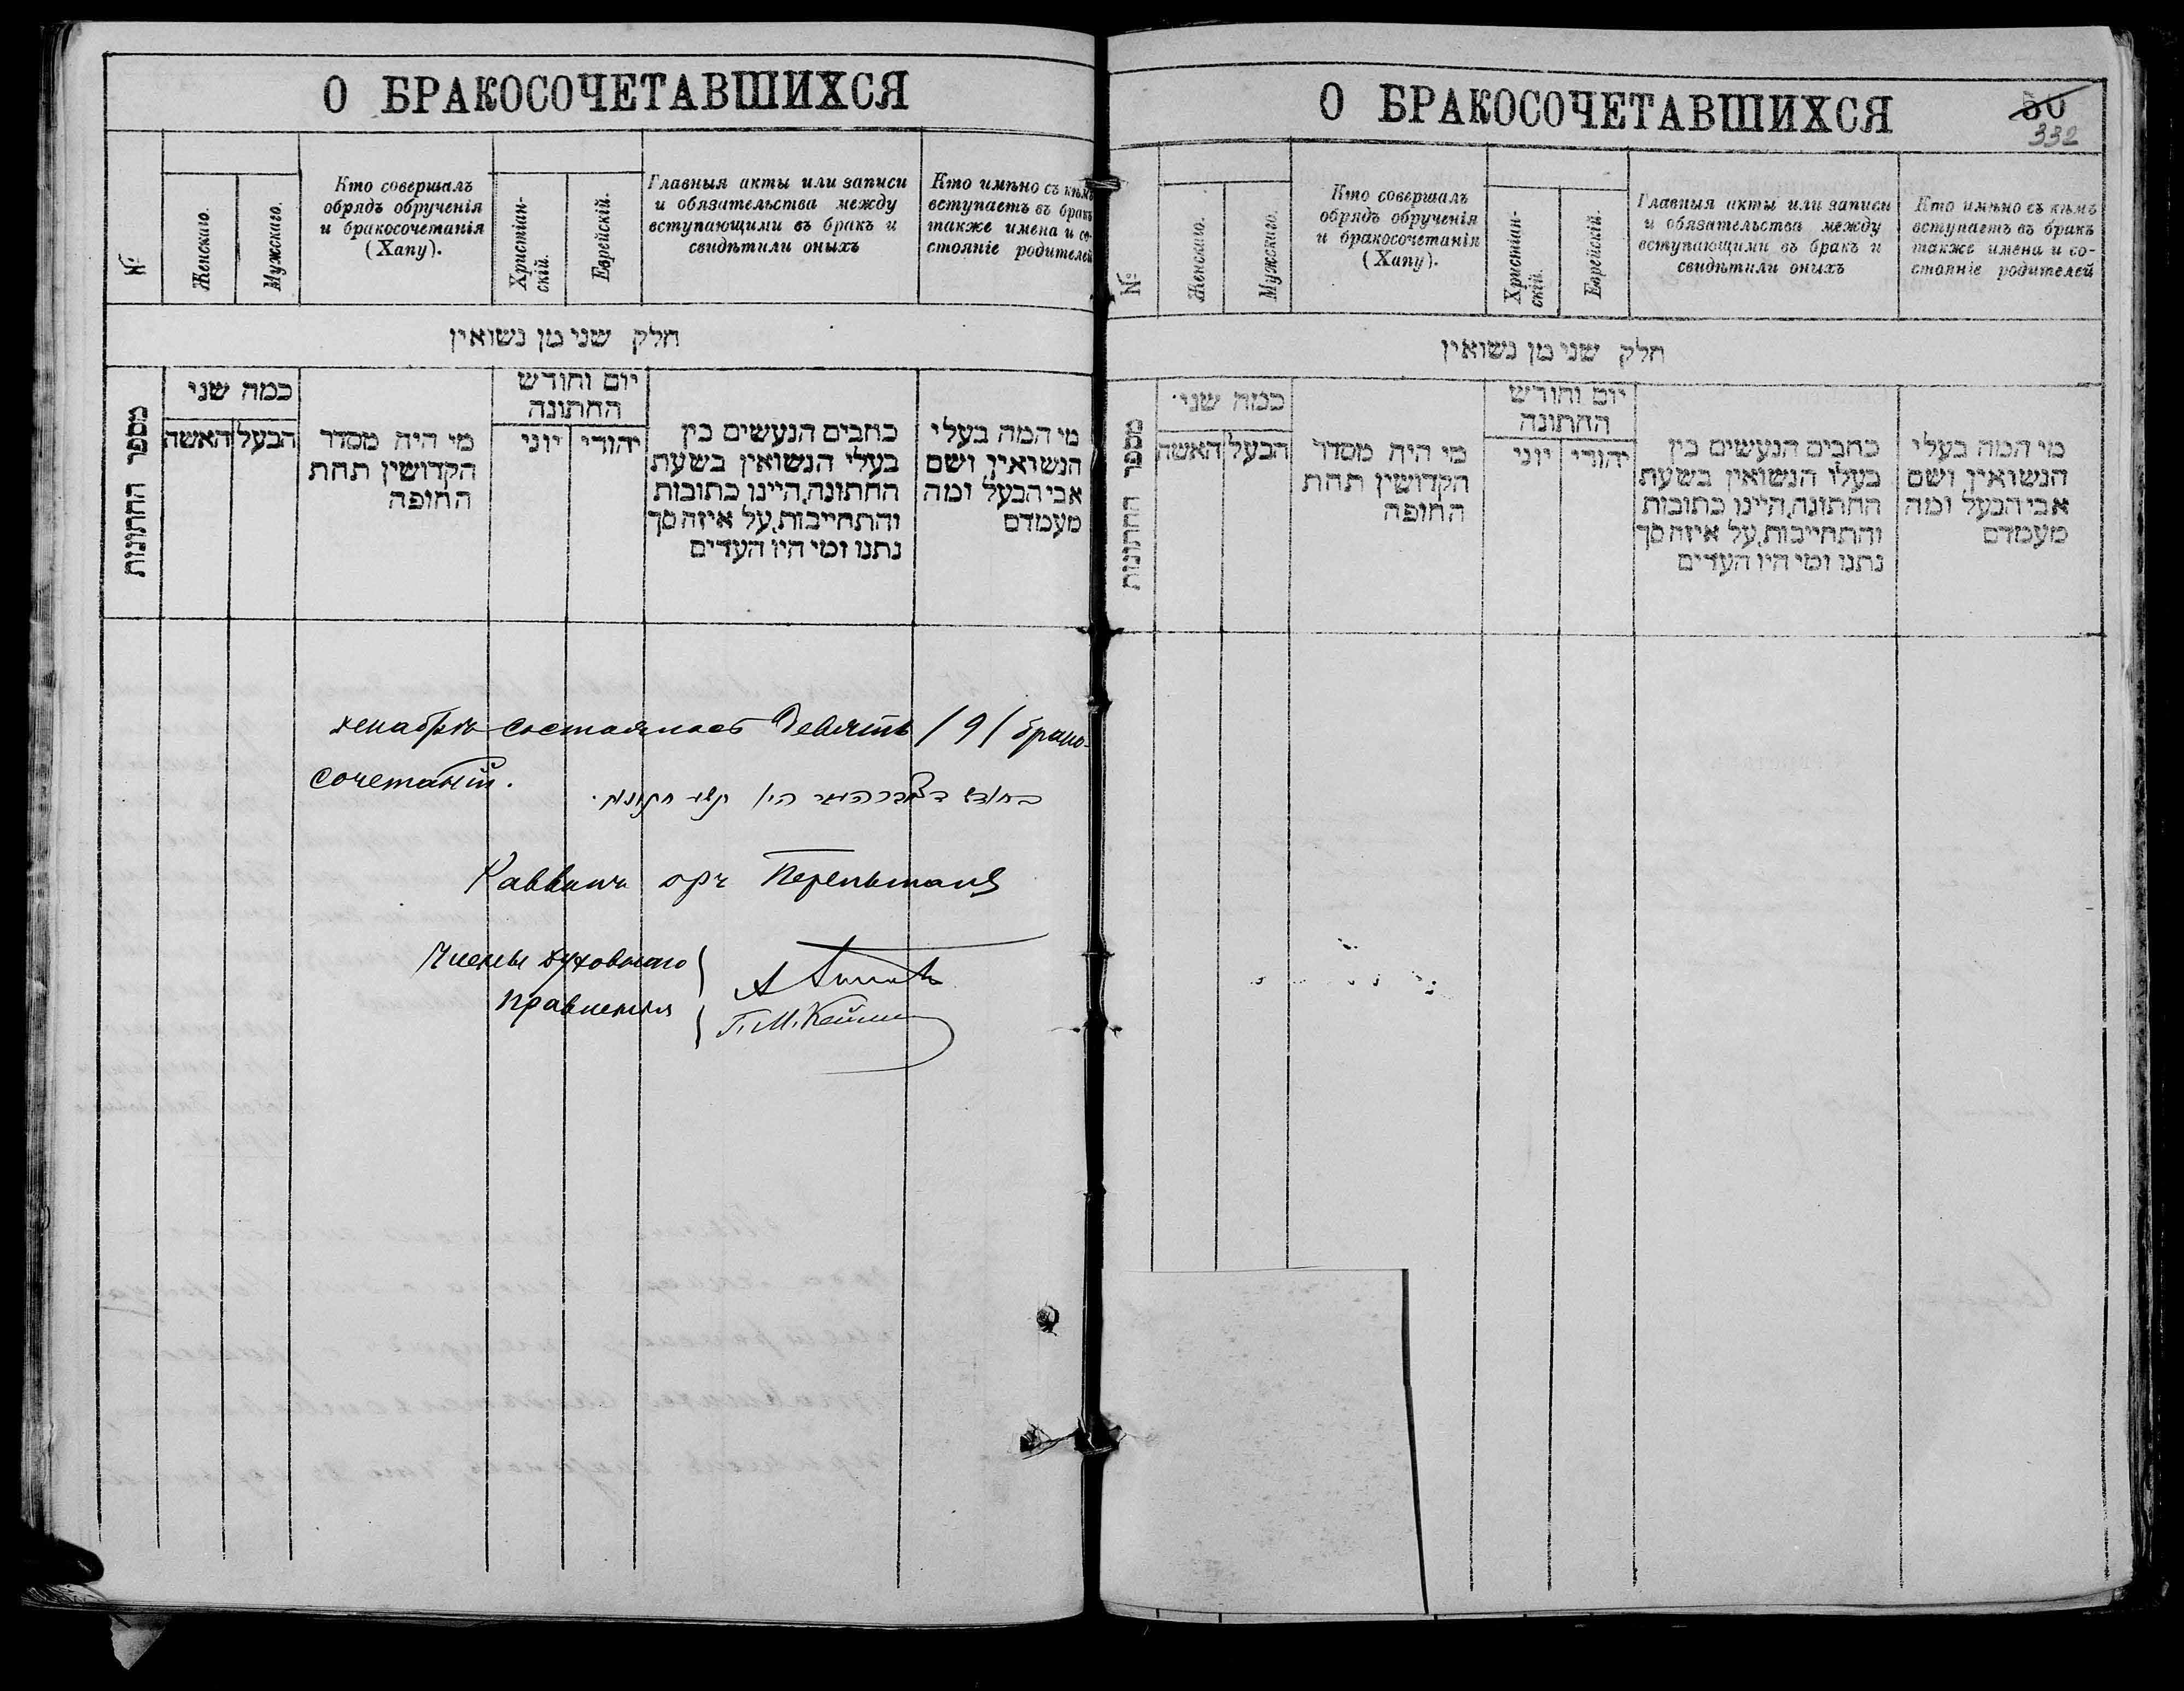 О БРАКОСОЧЕТАВШИХСЯ
№
Женскаго.
Мужскаго.
Кто совершалъ
обрядъ обрученія
и бракосочетанія
(Хапу).
Христіан-
скій.
Еврейскій.
Главныя акты или записи
и обязательства между
вступающими въ бракъ и
свидѣтили оныхъ
Кто имѣно съ кѣмъ
вступаетъ въ бракъ
также имена и со-
стояніе родителей
חלק שני מן נשואין
מספר החתונות
כמה שני
האשה
הבעל
מי היה מסדר
הקדושין תחת
החופה
יום וחודש
החתונה
יוני
יהודי
כתבים הנעשים בין
בעלי הנשואין בשעת
החתונה, היינו כתובות
והתחייבות, על איזה סך
נתנו ומי היו העדים
מי המה בעלי
הנשואין ושם
אבי הבעל ומה
מעמדם
декабрѣ состоялось девять /9/ брако-
сочетаній.
היו תשע חתונות.
Раввинъ
Члены духовнаго
правленія
О БРАКОСОЧЕТАВШИХСЯ
50
332
№
Женскаго.
Мужскаго.
Кто совершалъ
обрядъ обрученія
и бракосочетанія
(Хапу).
Христіан-
скій.
Еврейскій.
Главныя акты или записи
и обязательства между
вступающими въ бракъ и
свидѣтили оныхъ
Кто имѣно съ кѣмъ
вступаетъ въ бракъ
также имена и со-
стояніе родителей
חלק שני מן נשואין
מספר החתונות
כמה שני
האשה
הבעל
מי היה מסדר
הקדושין תחת
החופה
יום וחודש
החתונה
יוני
יהודי
כתבים הנעשים בין
בעלי הנשואין בשעת
החתונה, היינו כתובות
והתחייבות, על איזה סך
נתנו ומי היו העדים
מי המה בעלי
הנשואין ושם
אבי הבעל ומה
מעמדם